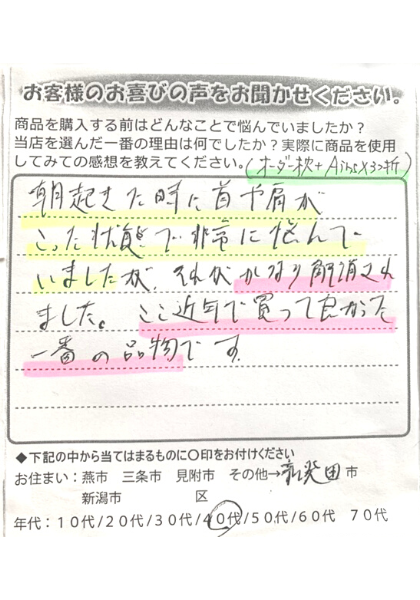 お客様のお喜びの声をお聞かせください。
商品を購入する前はどんなことで悩んでいましたか？
当店を選んだ一番の理由は何でしたか？実際に商品を使用
してみての感想を教えてください。(オーダー枕+Air
朝起きた時に首や肩が
こった状態で非常に悩んで
いましたが、それがかなり解消され
ました。ここ近年で買って良かった
一番の品物です
◆下記の中から当てはまるものに〇印をお付けください
お住まい：燕市　三条市　見附市　その他→新発田市
新潟市　　　　　　区
年代：１０代/２０代/３０代/４０代/５０代/６０代　７０代